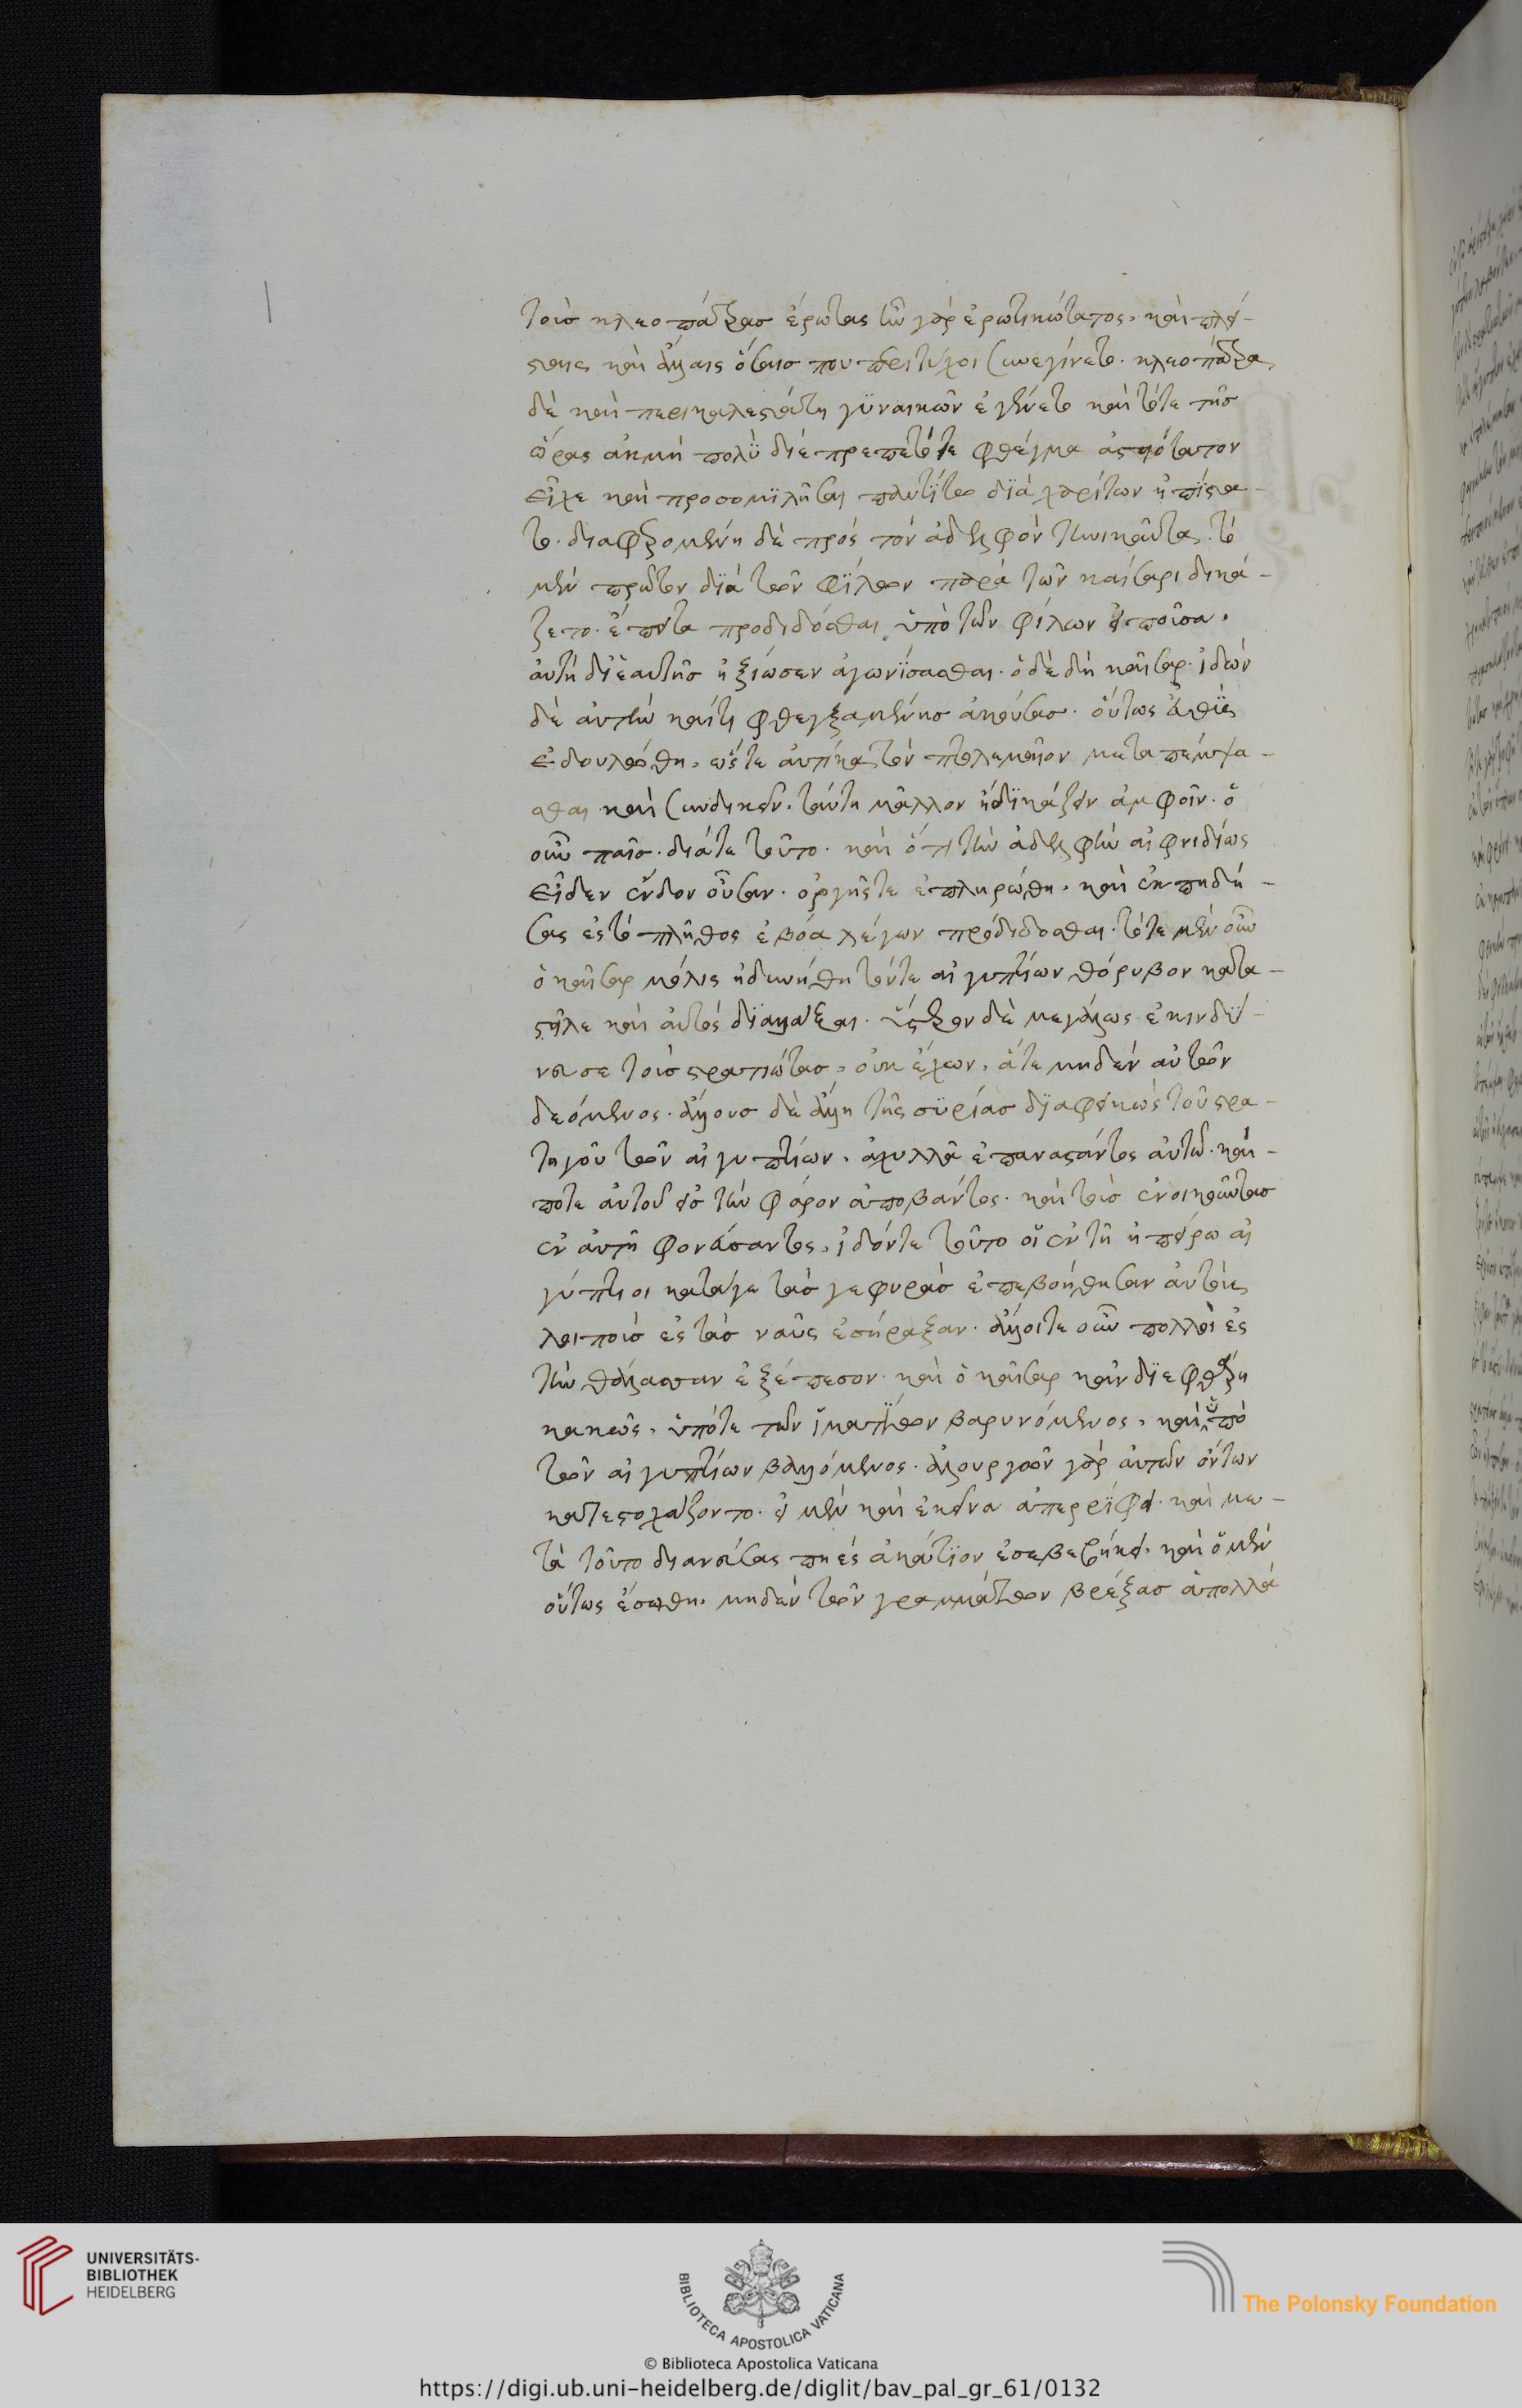 τοὺς κλεοπάτρας ἔρωτας ἦν γὰρ ἐρωτικώτατος. καὶ πλεί-
σταις καὶ ἄλλαις ὅσαις που περιτύχοι συνεγίνετο. κλεοπάτρα
δὲ καὶ περικαλεστάτη γυναικῶν ἐγένετο καὶ τότε τῆς
ὥρας ἀκμῇ πολὺ διέπρεπε τότε φθέγμα ἀστειότατον
εἶχε καὶ προσομιλῆσαι παντί τω διὰ χαρίτων ἠπίστα-
το. διαφερομένη δὲ πρὸς τὸν ἀδελφὸν
μὲν πρῶτον διὰ τῶν φίλων παρὰ τῶν καίσαρι δικά-
ζετο. ἔπειτα προδιδόσθαι ὑπὸ τῶν φίλων
αὐτὴ δι' ἑαυτῆς ἠξίωσεν ἀγωνίσασθαι. ὁ δὲ δὴ καῖσαρ. ἰδών
δὲ αὐτὴν καί τι φθεγξαμένης ἀκούσας. οὕτως εὐθὺς
ἐδουλώθη. ὥστε αὐτίκα τὸν πτολεμαῖον μεταπέμψα-
σθαι καὶ συνδικεῖν. ταύτῃ μᾶλλον ἢ δικάζειν ἀμφοῖν. ὁ
οὖν παῖς. διά τε τοῦτο. καὶ ὅτι τὴν ἀδελφὴν αἰφνιδίως
εἶδεν ἔνδον οὖσαν. ὀργῆς τε ἐπληρώθη. καὶ ἐκπηδή-
σας ἐς τὸ πλῆθος ἐβόα λέγων προδίδοσθαι. τότε μὲν οὖν
ὁ καῖσαρ μόλις ἠδυνήθη τόν τε αἰγυπτίων θόρυβον κατα-
στεῖλε καὶ αὐτὸς διαλλάξαι. ὕστερον δὲ μεγάλως ἐκινδύ-
νευσε τοὺς στρατιώτας. οὐκ ἔχων. ἅτε μηδὲν αὐτῶν
δεόμενος. ἄλλους δὲ ἄλλῃ τῆς συρίας διαφεικώς τοῦ στρα-
τηγοῦ τῶν αἰγυπτίων. ἀχιλλᾶ ἐπαναστάντος αὐτῷ. καί-
ποτε αὐτοῦ εἰς τὴν φάρον ἀποβάντος. καὶ τοὺς ἐνοικοῦντας
ἐν αὐτῇ φονεύσαντος. ἰδόντε τοῦτο οἱ ἐν τῇ ἠπείρῳ αἰ
γύπτιοι κατά γε τὰς γεφυρὰς ἐπεβοήθησαν αὐτοὺς
λοιποὺς ἐς τὰς ναῦς ἐσήραξαν. ἄλλοι τε οὖν πολλοὶ ἐς
τὴν θάλασσαν ἐξέπεσον. καὶ ὁ καῖσαρ κἂν διεφθάρη
κακῶς. ὑπό τε τῶν ἱματίων βαρυνόμενος. καὶ ὑπὸ
τῶν αἰγυπτίων βαλλόμενος. ἁλουργῶν γὰρ αὐτῶν ὄντων
κατεστοχάζοντο. εἰ μὲν καὶ ἐκεῖνα ἀπερρίφει. καὶ με-
τὰ τοῦτο διανεύσας πῃ ἐς ἀκάτιον ἐσεβεβήκει. καὶ ὁ μὲν
οὕτως ἐσώθη. μηδὲν τῶν γραμμάτων βρέξας ἃ πολλὰ
UNIVERSITÄTS-
BIBLIOTHEK
HEIDELBERG
BIBLIOTECA APOSTOLICA VATICANA
The Polonsky Foundation
© Biblioteca Apostolica Vaticana
https://digi.ub.uni-heidelberg.de/diglit/bav_pal_gr_61/0132